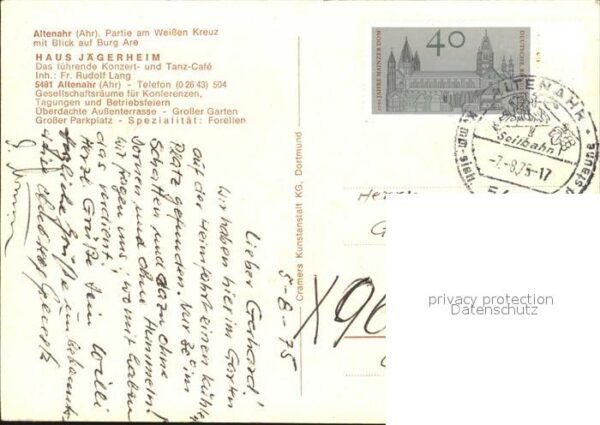 Altenahr (Ahr), Partie am Weißen Kreuz
mit Blick auf Burg Are
HAUS JÄGERHEIM
Das führende Konzert- und Tanz-Café
Inh.: Fr. Rudolf Lang
5481 Altenahr (Ahr) - Telefon (0 26 43) 504
Gesellschaftsräume für Konferenzen,
Tagungen und Betriebsfeiern
Überdachte Außenterrasse - Großer Garten
Großer Parkplatz - Spezialität: Forellen
5-8-75
Lieber Gerhard!
Wir haben hier im Garten
auf der Heimfahrt einen kühlen
Platz gefunden. Nur 20 im
Schatten und dazu ohne
Dornen und ohne Hummeln!
Wir fragen uns, womit haben
das verdient!
Herzl. Grüße Dein Willi
Herzliche Grüße
Cramers Kunstanstalt KG, Dortmund
40
1000 JAHRE MAINZER DOM
DEUTSCHE
ALTENAHR
Seilbahn
-7.-8.75-17
und staune
Herrn
G
X 96
privacy protection
Datenschutz